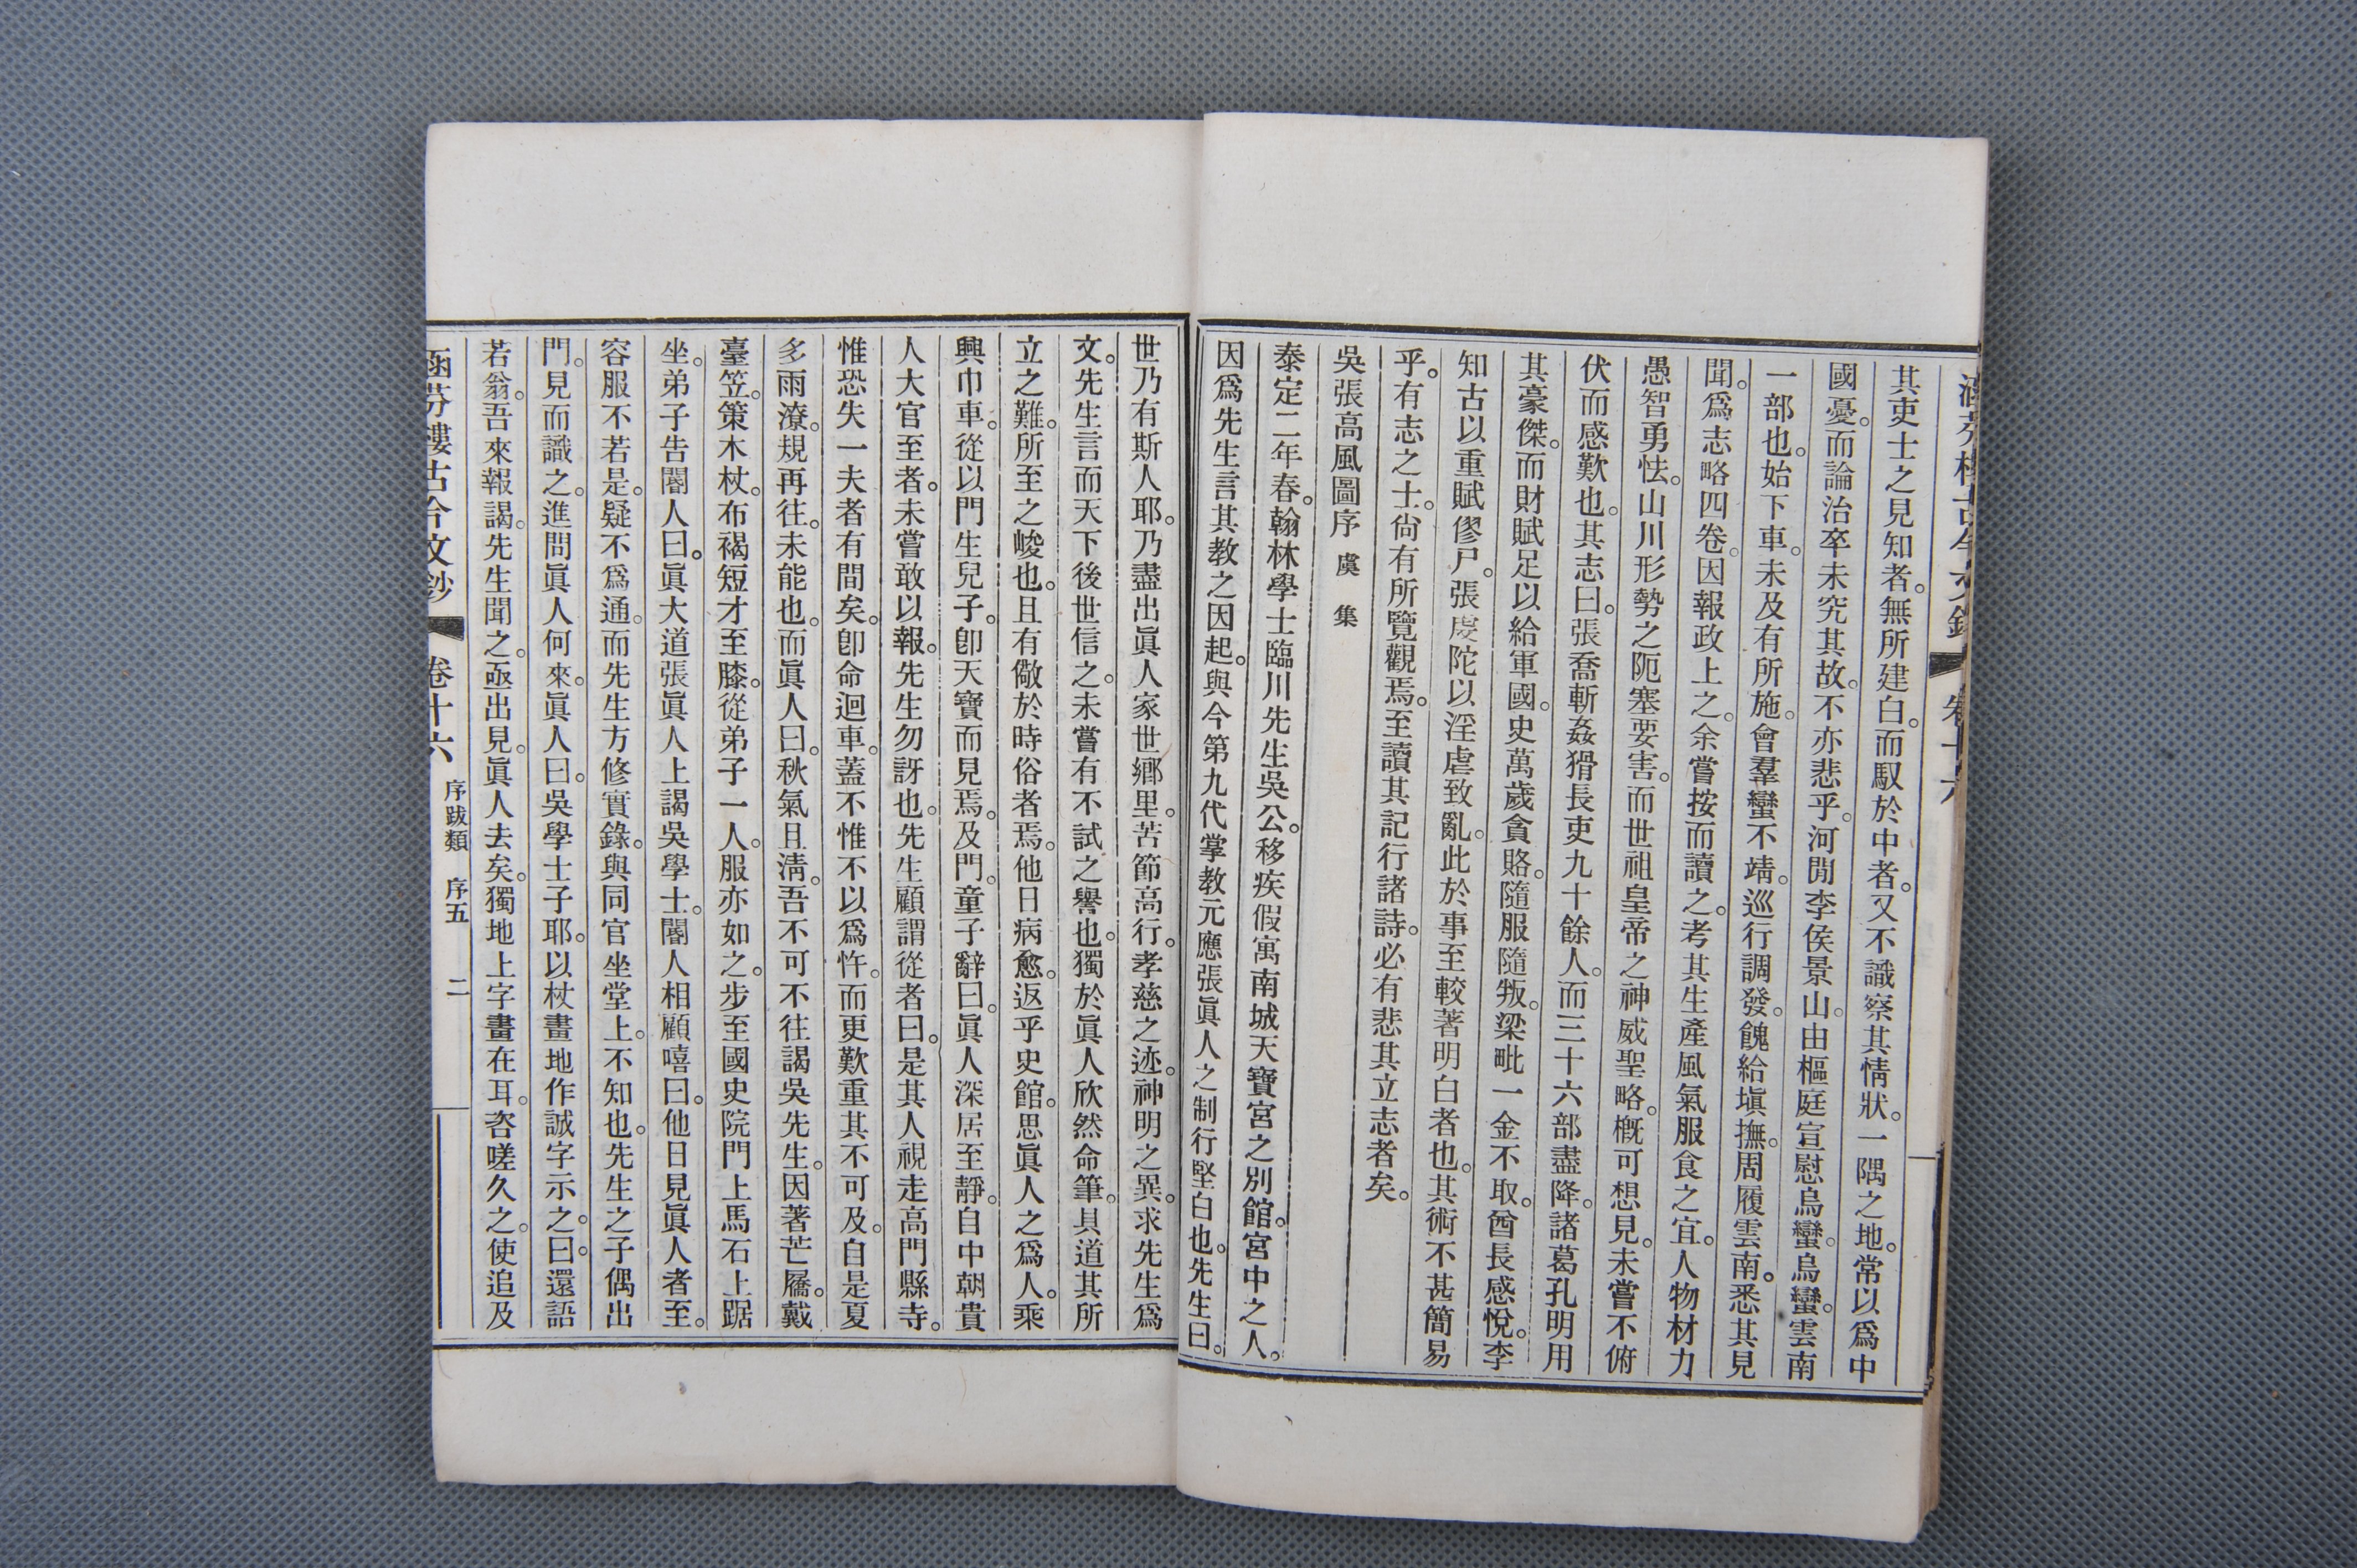 涵芬樓古今文鈔 卷十六
其吏士之見知者。無所建白。而馭於中者。又不識察其情狀。一隅之地。常以爲中
國憂。而論治卒未究其故。不亦悲乎。河閒李侯景山。由樞庭宣慰烏蠻。烏蠻。雲南
一部也。始下車。未及有所施。會羣蠻不靖。巡行調發。餽給塡撫。周履雲南。悉其見
聞。爲志略四卷。因報政上之。余嘗按而讀之。考其生產風氣服食之宜。人物材力
愚智勇怯。山川形勢之阨塞要害。而世祖皇帝之神威聖略。槪可想見。未嘗不俯
伏而感歎也。其志曰。張喬斬姦猾長吏九十餘人。而三十六部盡降。諸葛孔明用
其豪傑。而財賦足以給軍國。史萬歲貪賂。隨服隨叛。梁毗一金不取。酋長感悅。李
知古以重賦僇尸。張虔陀以淫虐致亂。此於事至較著明白者也。其術不甚簡易
乎。有志之士。尙有所覽觀焉。至讀其記行諸詩。必有悲其立志者矣。
吳張高風圖序 虞 集
泰定二年春。翰林學士臨川先生吳公。移疾假寓南城天寶宮之別館。宮中之人。
因爲先生言其教之因起。與今第九代掌教元應張眞人之制行堅白也。先生曰。
世乃有斯人耶。乃盡出眞人家世鄉里。苦節高行。孝慈之迹。神明之異。求先生爲
文。先生言而天下後世信之。未嘗有不試之譽也。獨於眞人欣然命筆。具道其所
立之難。所至之峻也。且有儆於時俗者焉。他日病愈。返乎史館。思眞人之爲人。乘
興巾車。從以門生兒子。卽天寶而見焉。及門。童子辭曰。眞人深居至靜。自中朝貴
人大官至者。未嘗敢以報。先生勿訝也。先生顧謂從者曰。是其人視走高門縣寺。
惟恐失一夫者有間矣。卽命迴車。蓋不惟不以爲忤。而更歎重其不可及。自是夏
多雨潦。規再往。未能也。而眞人曰。秋氣且淸。吾不可不往謁吳先生。因著芒屩。戴
臺笠。策木杖。布褐短才至膝。從弟子一人。服亦如之。步至國史院門上馬石上踞
坐。弟子告閽人曰。眞大道張眞人上謁吳學士。閽人相顧嘻曰。他日見眞人者至。
容服不若是。疑不爲通。而先生方修實錄。與同官坐堂上。不知也。先生之子偶出
門。見而識之。進問眞人何來。眞人曰。吳學士子耶。以杖畫地作誠字示之。曰。還語
若翁。吾來報謁。先生聞之。亟出見。眞人去矣。獨地上字畫在耳。咨嗟久之。使追及
涵芬樓古今文鈔 卷十六 序跋類 序五 二